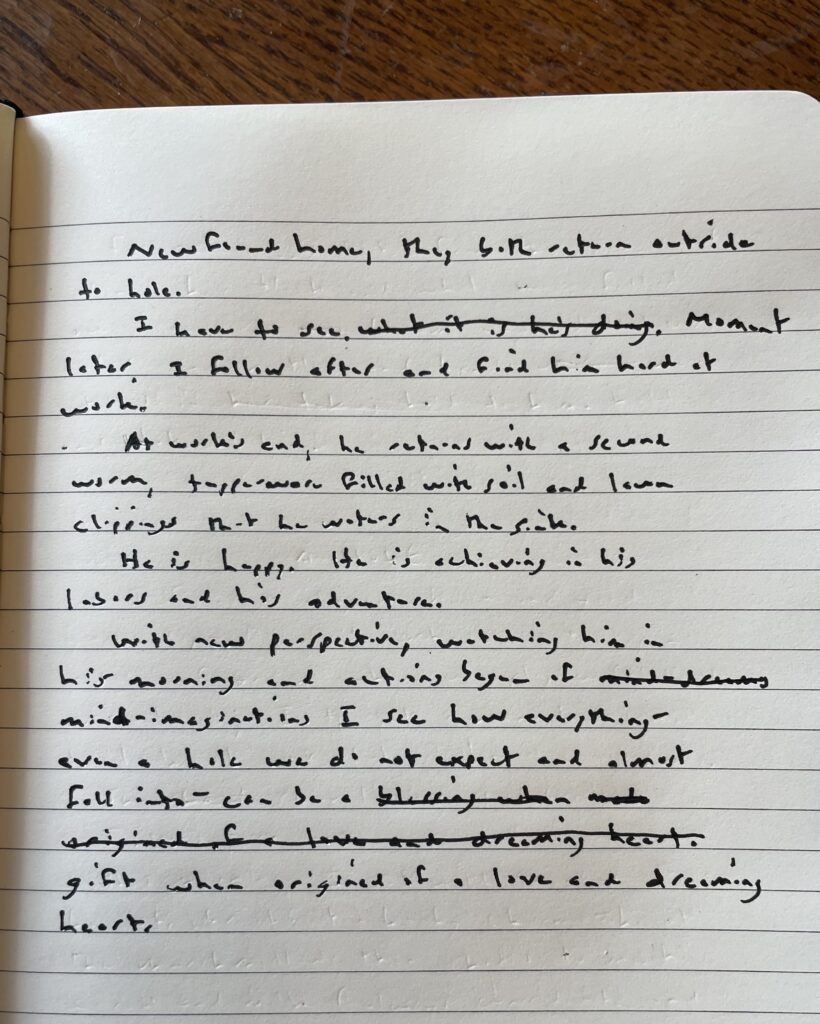 New found home, they both return outside
to hole.
I have to see. what it is he's doing. Moment
later, I follow after and find him hard at
work.
At work's end, he returns with a second
worm, tupperware filled with soil and lawn
clippings that he waters in the sink.
He is happy. He is achieving in his
labors and his adventure.
With new perspective, watching him in
his morning and actions began of mind-dreams
mind-imaginations I see how everything-
even a hole we do not expect and almost
fall into- can be a blessing when made
origined of a love and dreaming heart.
gift when origined of a love and dreaming
heart.